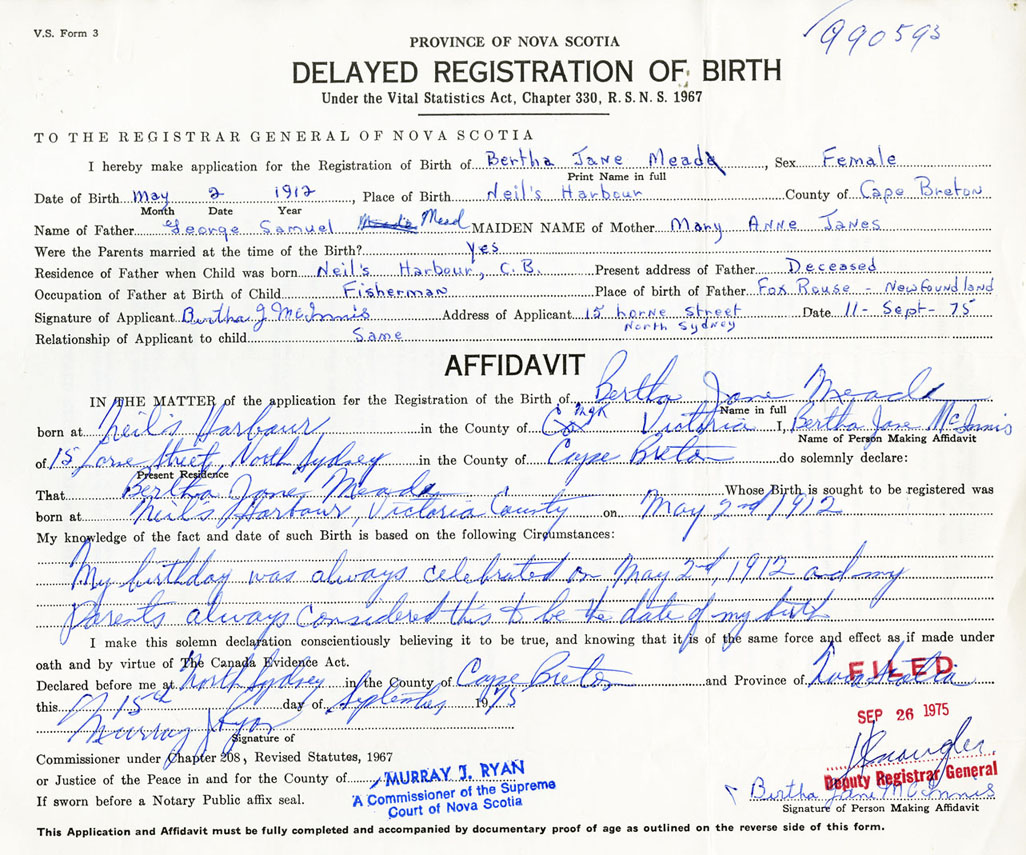 V.S. Form 3
990593
PROVINCE OF NOVA SCOTIA
DELAYED REGISTRATION OF BIRTH
Under the Vital Statistics Act, Chapter 330, R.S.N.S. 1967
TO THE REGISTRAR GENERAL OF NOVA SCOTIA
I hereby make application for the Registration of Birth of Bertha Jane Mead, Sex Female
Print Name in full
Date of Birth May 2 1912, Place of Birth Neil's Harbour County of Cape Breton
Month Date Year
Name of Father George Samuel Mead MAIDEN NAME of Mother Mary Anne Janes
Were the Parents married at the time of the Birth? Yes
Residence of Father when Child was born Neil's Harbour, C.B. Present address of Father Deceased
Occupation of Father at Birth of Child Fisherman Place of birth of Father Fox Rouse - Newfoundland
Signature of Applicant Bertha J McInnis Address of Applicant 15 horne street Date 11 - Sept - 75
North Sydney
Relationship of Applicant to child Same
AFFIDAVIT
IN THE MATTER of the application for the Registration of Birth of Bertha Jane Mead
Name in full
born at Neil's Harbour in the County of Victoria I, Bertha Jane McInnis
Name of Person Making Affidavit
of 15 Lorne Street, North Sydney in the County of Cape Breton do solemnly declare:
Present Residence
That Bertha Jane Mead Whose Birth is sought to be registered was
born at Neil's Harbour, Victoria County on May 2nd 1912
My knowledge of the fact and date of such Birth is based on the following Circumstances:
My birthday was always celebrated on May 2nd, 1912 and my
Parents always considered this to be the date of my birth
I make this solemn declaration conscientiously believing it to be true, and knowing that it is of the same force and effect as if made under
oath and by virtue of The Canada Evidence Act.
Declared before me at North Sydney in the County of Cape Breton and Province of Nova Scotia
FILED
this 15th day of September 1975
SEP 26 1975
Murray J Ryan
Signature of
Commissioner under Chapter 208, Revised Statutes, 1967
or Justice of the Peace in and for the County of
MURRAY J. RYAN
A Commissioner of the Supreme
Court of Nova Scotia
Deputy Registrar General
If sworn before a Notary Public affix seal.
Bertha Jane McInnis
Signature of Person Making Affidavit
This Application and Affidavit must be fully completed and accompanied by documentary proof of age as outlined on the reverse side of this form.